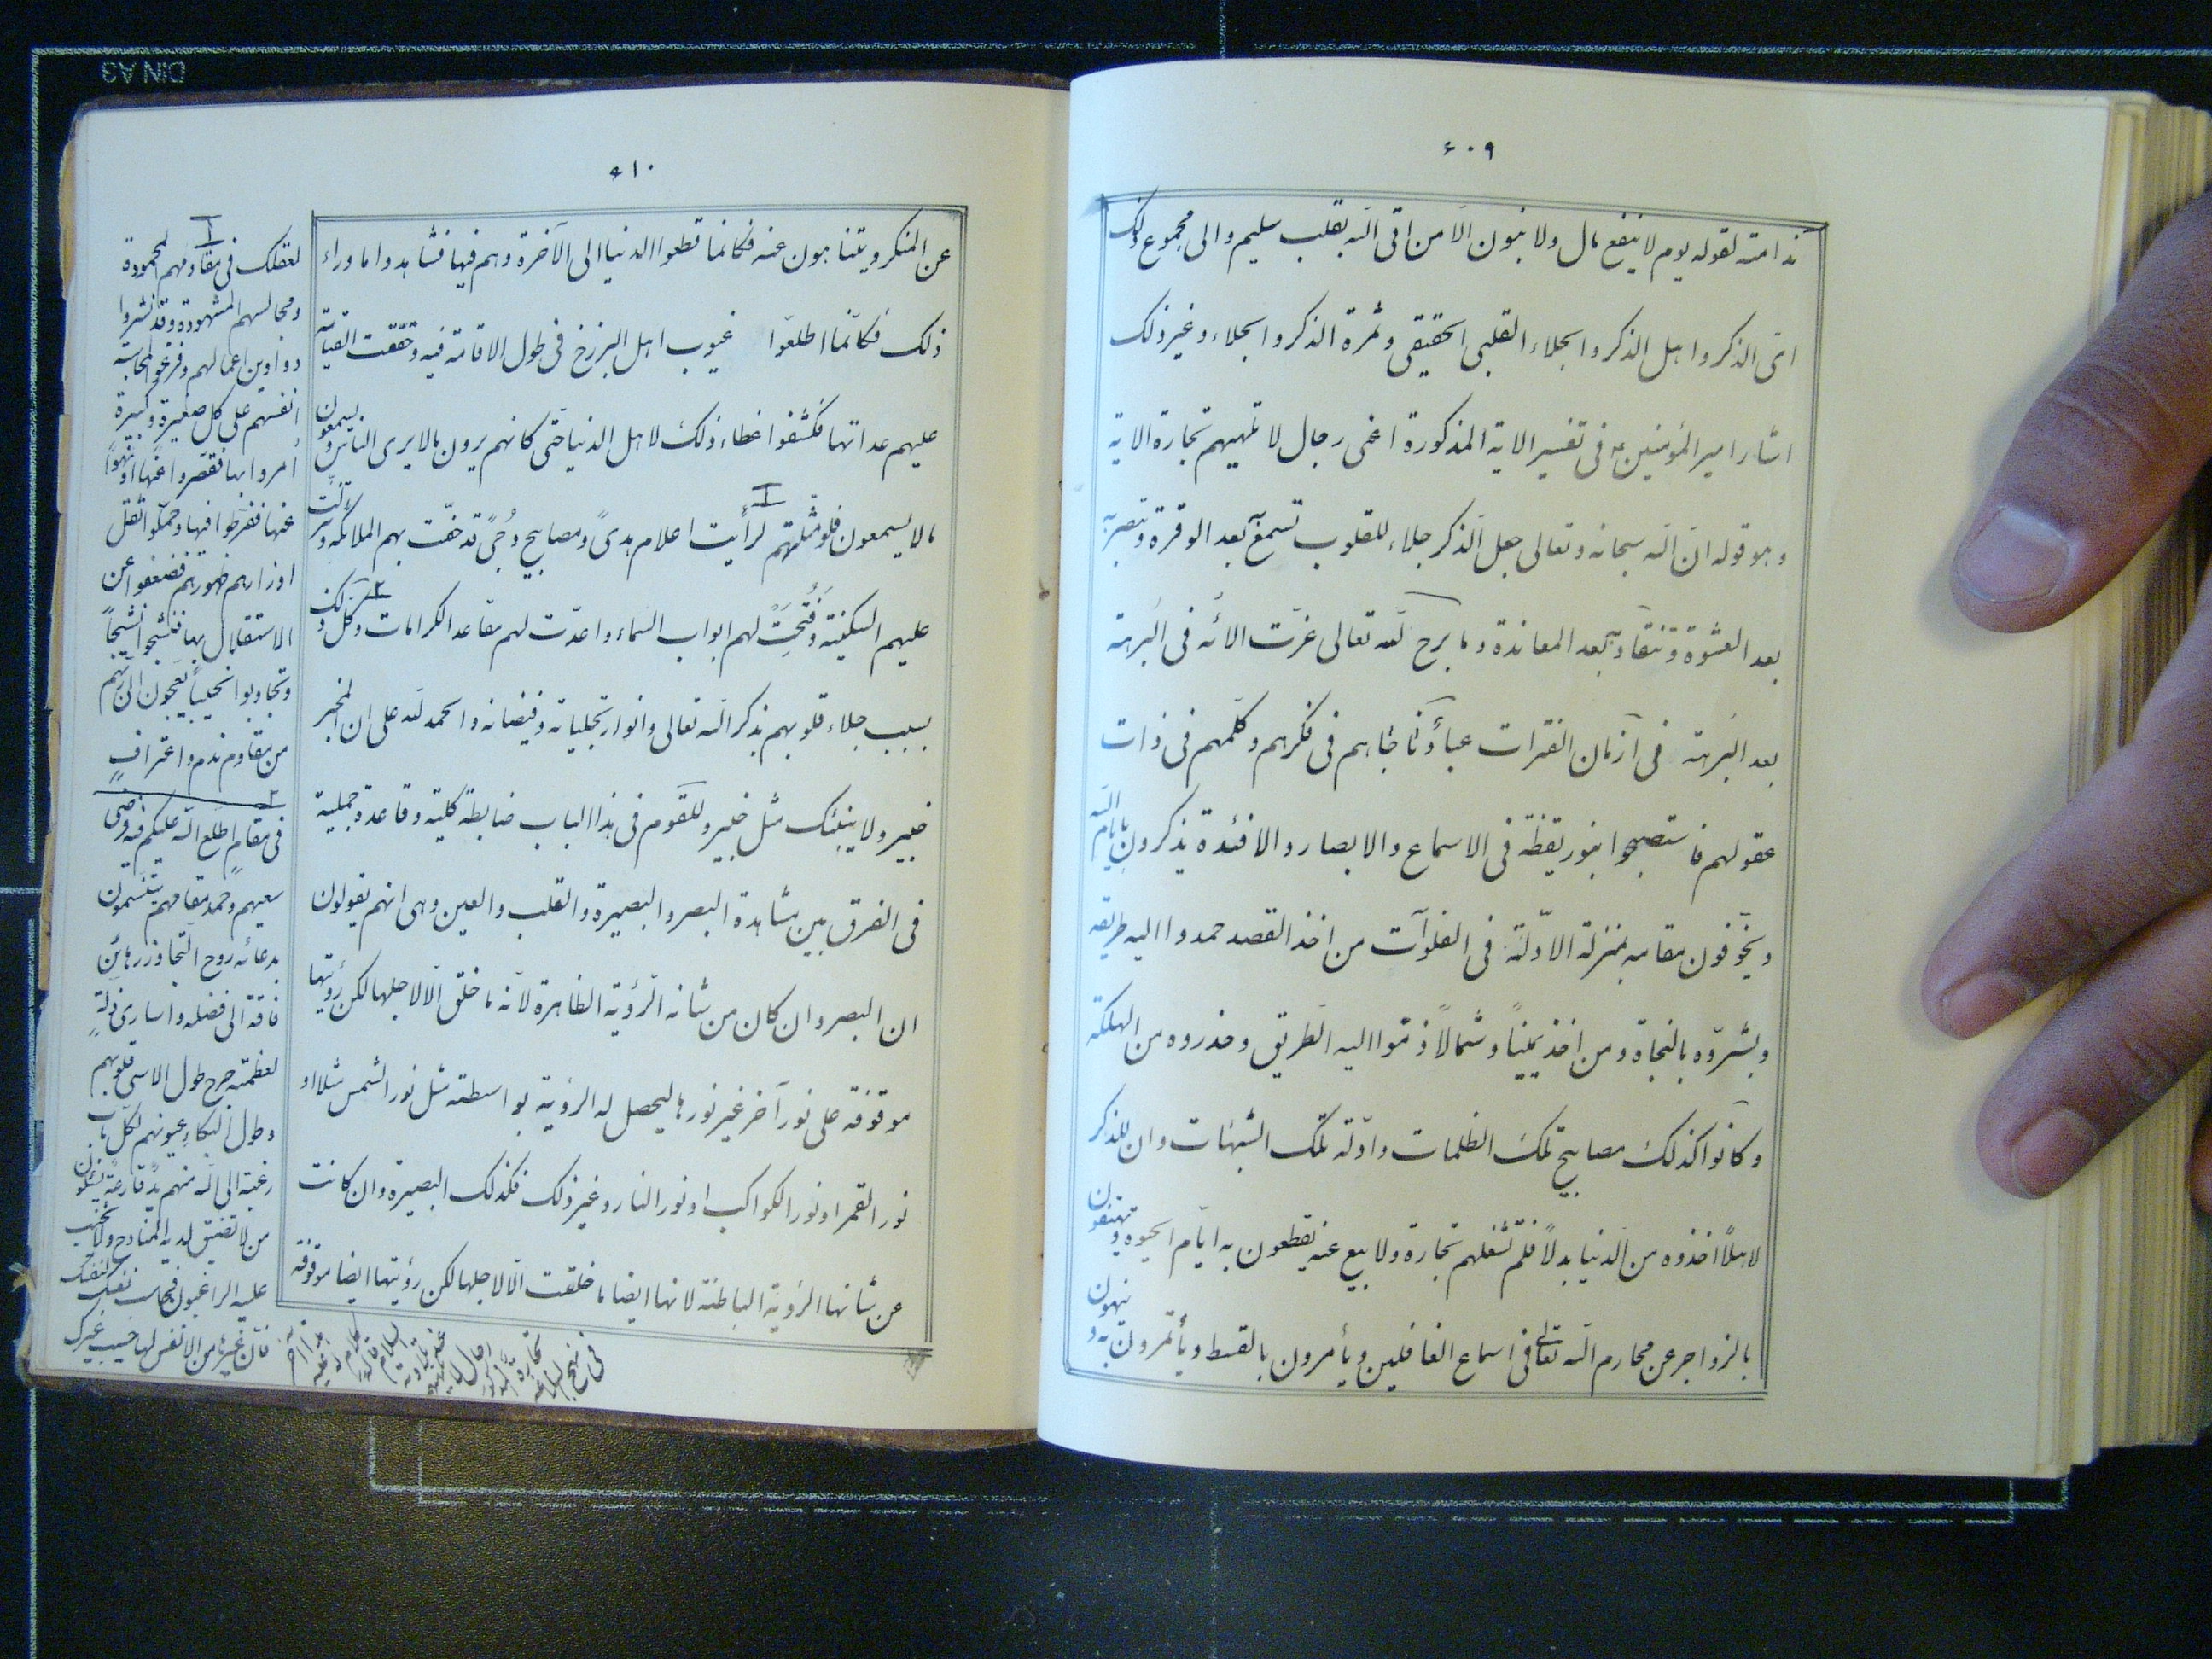 ۶۰۹
ندامته لقوله يوم لا ينفع مال ولا بنون الّا من اتى الله بقلب سليم والى مجموع ذلك
اىّ الذكر واهل الذكر والجلاء القلبى الحقيقى وثمرة الذكر والجلاء وغير ذلك
اشار امير المؤمنين ع فى تفسير الاية المذكورة اعنى رجال لا تلهيهم تجارة الاية
وهو قوله انّ الله سبحانه وتعالى جعل الذكر جلاء للقلوب تسمع به بعد الوقرة وتبصر به
بعد العشوة وتنقاد به بعد المعاندة وما برح لله تعالى عزّت الائه فى البرهة
بعد البرهة فى ازمان الفترات عباد ناجاهم فى فكرهم وكلّمهم فى ذات
عقولهم فاستصبحوا بنور يقظة فى الاسماع والابصار والافئدة يذكرون بايام الله
ويخوّفون مقامه بمنزلة الادلّة فى الفلوات من اخذ القصد حمدوا اليه طريقه
وبشّروه بالنجاة ومن اخذ يميناً وشمالاً ذمّوا اليه الطريق وحذروه من الهلكة
وكانوا كذلك مصابيح تلك الظلمات وادلّة تلك الشبهات وان للذكر
لاهلاً اخذوه من الدنيا بدلاً فلم تشغلهم تجارة ولا بيع عنه يقطعون به ايّام الحيوة ويهتفون
بالزواجر عن محارم الله تعالى فى اسماع الغافلين ويأمرون بالقسط ويأتمرون به وينهون
۶۱۰
عن المنكر ويتناهون عنه فكانما قطعوا الدنيا الى الآخرة وهم فيها فشاهدوا ما وراء
ذلك فكانّما اطلعوا غيوب اهل البرزخ فى طول الاقامة فيه وحققت القيامة
عليهم عداتها فكشفوا غطاء ذلك لاهل الدنيا حتى كانهم يرون ما لا يرى الناس ويسمعون
ما لا يسمعون فلو مثّلتهم لرأيت اعلام هدىً ومصابيح دُجىً قد حفّت بهم الملائكة وتنزّلت
عليهم السكينة وفُتِحَت لهم ابواب السماء واعدّت لهم مقاعد الكرامات وكل ذلك
بسبب جلاء قلوبهم بذكر الله تعالى وانوار تجلياته وفيضانه والحمد لله على ان المخبر
خبير ولا ينبئك مثل خبير وللقوم فى هذا الباب ضابطة كلية وقاعدة جملية
فى الفرق بين مشاهدة البصر والبصيرة والقلب والعين وهى انهم يقولون
ان البصر وان كان من شانه الرؤية الظاهرة لانّه ما خلق الّا لاجلها لكن رؤيتها
موقوفة على نور آخر غير نورها ليحصل له الرؤية بواسطته مثل نور الشمس مثلا او
نور القمر او نور الكواكب او نور النار وغير ذلك فكذلك البصيرة وان كانت
من شانها الرؤية الباطنة لانها ايضا ما خلقت الّا لاجلها لكن رؤيتها ايضا موقوفة
لعقلك فى مقاومهم المحمودة
ومجالسهم المشهودة وقد نشروا
دواوين اعمالهم وفرغوا لمحاسبة
انفسهم على كل صغيرة وكبيرة
أمروا بها فقصّروا عنها او نهوا
عنها ففرّطوا فيها وحمّلوا ثقل
اوزارهم ظهورهم فضعفوا عن
الاستقلال بها فنشجوا نشيجاً
وتجاوبوا نحيباً يعجّون الى ربّهم
من مقاوم ندم واعتراف
فى مقامٍ اطلع الله عليهم فيه فرضى
سعيهم وحمد مقامهم يتنسّمون
بدعائه روح التجاوز رهائن
فاقة الى فضله واسارى ذلّةٍ
لعظمته جرح طول الاسى قلوبهم
وطول البكاء عيونهم لكل باب
رغبة الى الله منهم يد قارعة يسألون
من لا تضيق لديه المنادح ولا يخيب
عليه الراغبون فحاسب نفسك لنفسك
فان غيرها من الانفس لها حسيب غيرك
فى نهج البلاغة